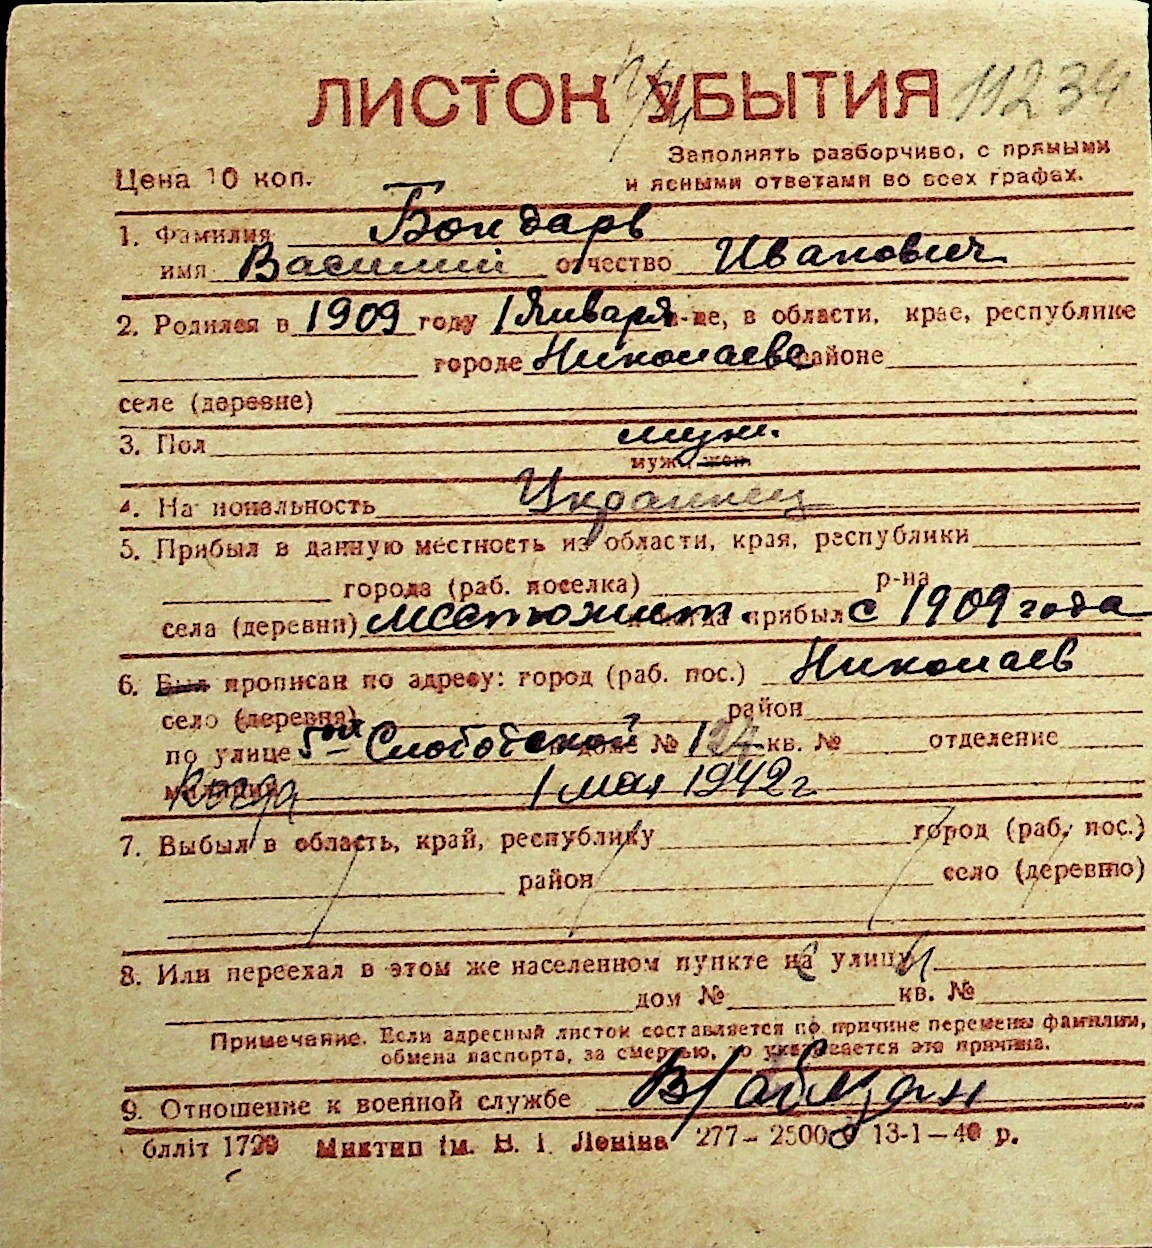 ЛИСТОК УБЫТИЯ 11234
Заполнять разборчиво, с прямыми
Цена 10 коп. и ясными ответами во всех графах.
1. Фамилия Бондарь
имя Василий отчество Иванович
2. Родился в 1909 году 1 Января м-це, в области, крае, республике
городе Николаеве районе
селе (деревне)
3. Пол муж.
муж., жен.
4. Национальность Украинец
5. Прибыл в данную местность из области, края, республики
города (раб. поселка) р-на
села (деревни) местожит. и когда прибыл с 1909 года
6. Был прописан по адресу: город (раб. пос.) Николаев
село (деревня) район
по улице 5ой Слободской в доме № кв. № отделение
милиции Когда 1 мая 1942 г
7. Выбыл в область, край, республику город (раб. пос.)
район село (деревню)
8. Или переехал в этом же населенном пункте на улицу
дом № кв. №
Примечание. Если адресный листок составляется по причине перемены фамилии,
обмена паспорта, за смертью, то указывается эта причина.
9. Отношение к военной службе В/обязан
блліт 1729 Миктип ім. В. І. Леніна 277– 25000 13-1–40 р.